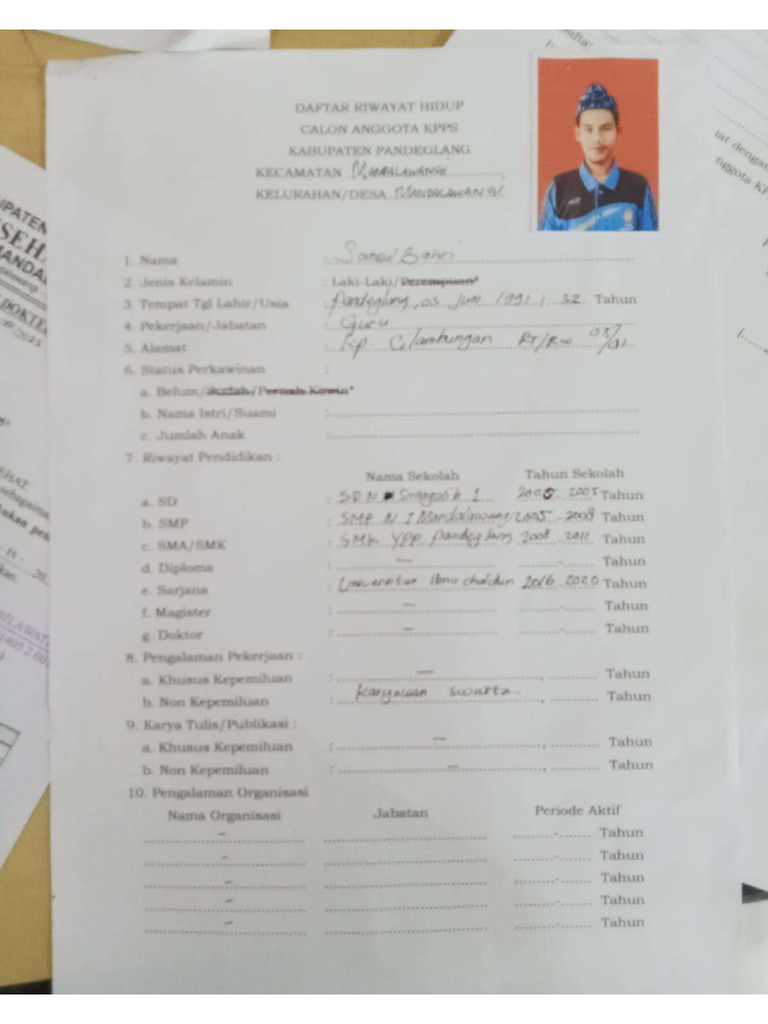 DAFTAR RIWAYAT HIDUP
CALON ANGGOTA KPPS
KABUPATEN PANDEGLANG
KECAMATAN MANDALAWANGI
KELURAHAN/DESA MANDALAWANGI
1. Nama : Samsul Bahri
2. Jenis Kelamin : Laki-Laki/Perempuan*
3. Tempat Tgl Lahir/Usia : Pandeglang, 03 Juni 1991, 32 Tahun
4. Pekerjaan/Jabatan : Guru
5. Alamat : Kp. Cilambungan RT/RW 03/01
6. Status Perkawinan :
a. Belum/Sudah/Pernah Kawin*
b. Nama Istri/Suami :
c. Jumlah Anak :
7. Riwayat Pendidikan :
Nama Sekolah Tahun Sekolah
a. SD : SDN 1 2005 Tahun
b. SMP : SMP N 1 Mandalawangi 2005 - 2008 Tahun
c. SMA/SMK : SMK YPP Pandeglang 2008 - 2011 Tahun
d. Diploma : — - Tahun
e. Sarjana : Universitas Ibnu Chaldun 2016 - 2020 Tahun
f. Magister : — - Tahun
g. Doktor : — - Tahun
8. Pengalaman Pekerjaan :
a. Khusus Kepemiluan : — , Tahun
b. Non Kepemiluan : Karyawan Swasta Tahun
9. Karya Tulis/Publikasi :
a. Khusus Kepemiluan : — , Tahun
b. Non Kepemiluan : — , Tahun
10. Pengalaman Organisasi
Nama Organisasi Jabatan Periode Aktif
- - Tahun
- - Tahun
- - Tahun
- - Tahun
- - Tahun